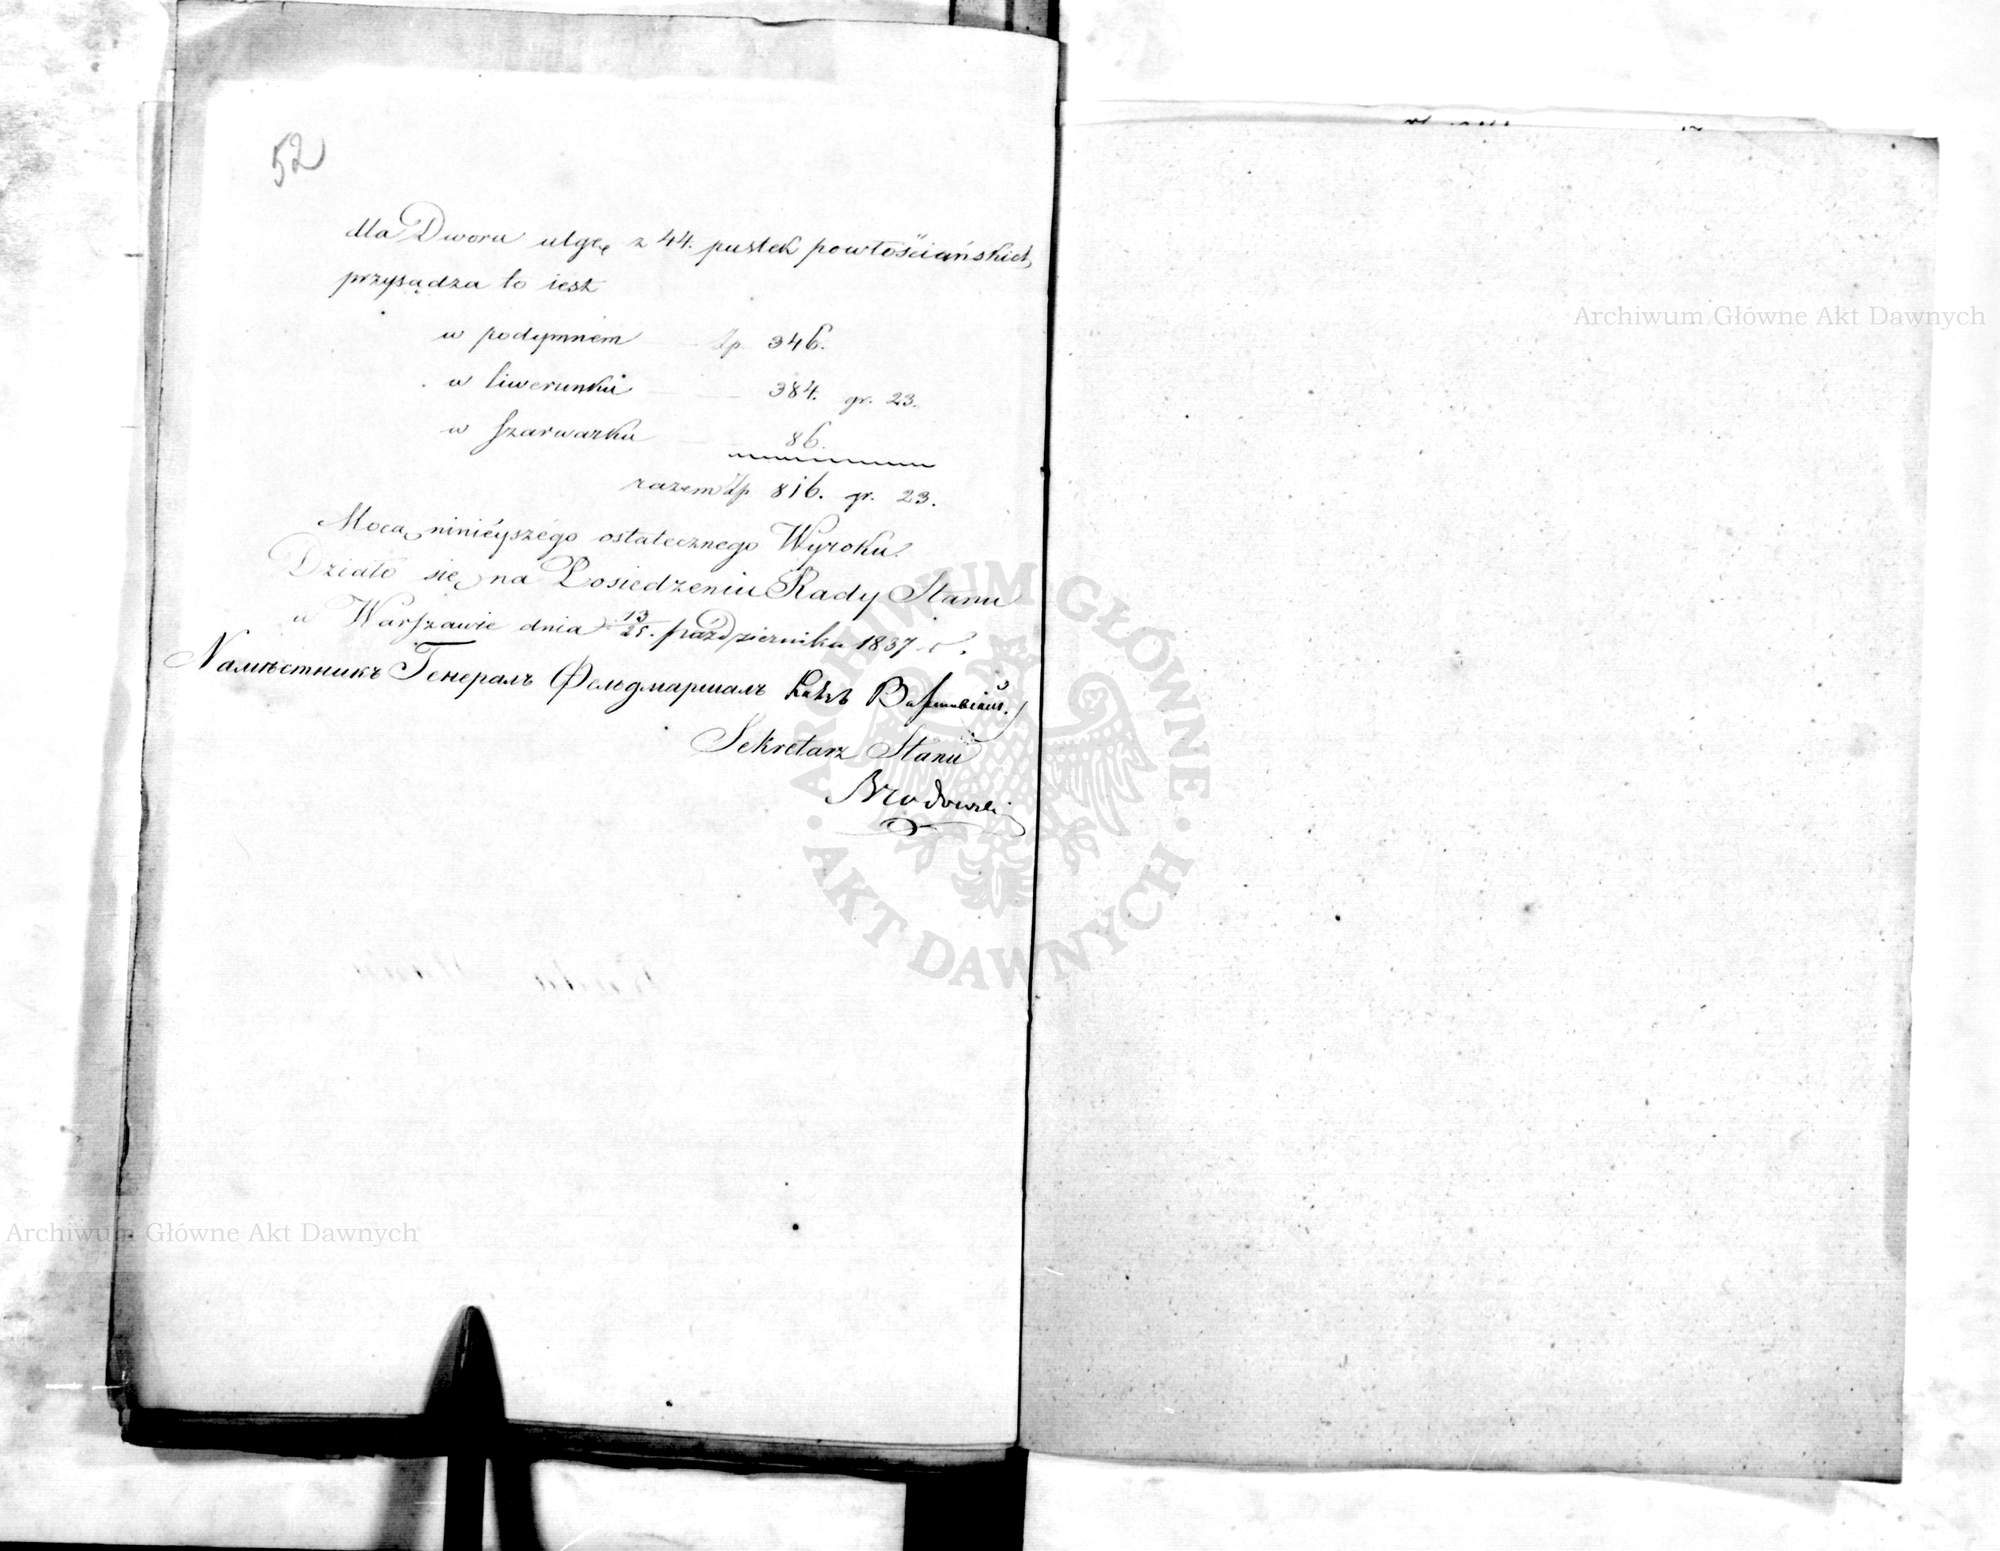 52
dla Dworu ulgę z 44. pustek powłościańskich
przysądza to iest
w podymném Zp. 346.
w liwerunku 384. gr. 23.
w szarwarku 86.
razem Zp. 816. gr. 23.
Mocą ninieyszégo ostatecznego Wyroku.
Działo się na Posiedzeniu Rady Stanu
w Warszawie dnia 13/25. października 1837 r.
Намѣстникъ Генералъ Фельдмаршалъ
Sekretarz Stanu
Brodowski
Archiwum Główne Akt Dawnych
Archiwum Główne Akt Dawnych
ARCHIWUM GŁÓWNE · AKT DAWNYCH ·